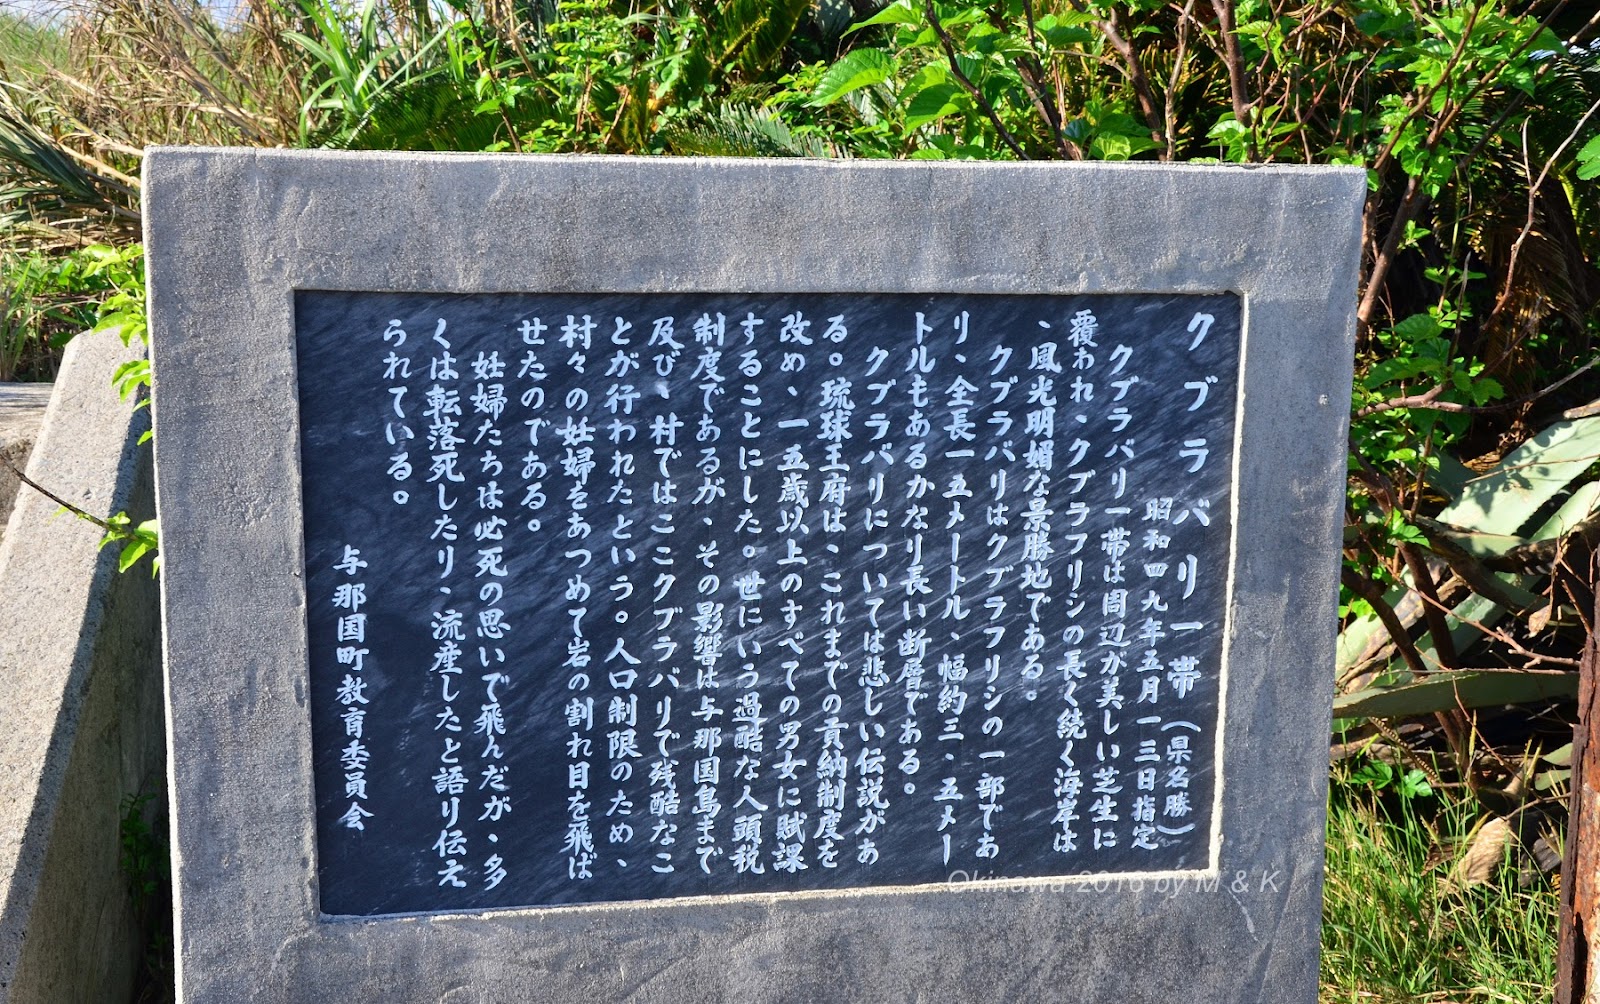 クブラバリ一帯（県名勝）
昭和四九年五月一三日指定
クブラバリ一帯は周辺が美しい芝生に
覆われ、クブラフリシの長く続く海岸は
、風光明媚な景勝地である。
クブラバリはクブラフリシの一部であ
り、全長一五メートル、幅約三、五メー
トルもあるかなり長い断層である。
クブラバリについては悲しい伝説があ
る。琉球王府は、これまでの貢納制度を
改め、一五歳以上のすべての男女に賦課
することにした。世にいう過酷な人頭税
制度であるが、その影響は与那国島まで
及び、村ではここクブラバリで残酷なこ
とが行われたという。人口制限のため、
村々の妊婦をあつめて岩の割れ目を飛ば
せたのである。
妊婦たちは必死の思いで飛んだが、多
くは転落死したり、流産したと語り伝え
られている。
与那国町教育委員会
Okinawa 2016 by M & K